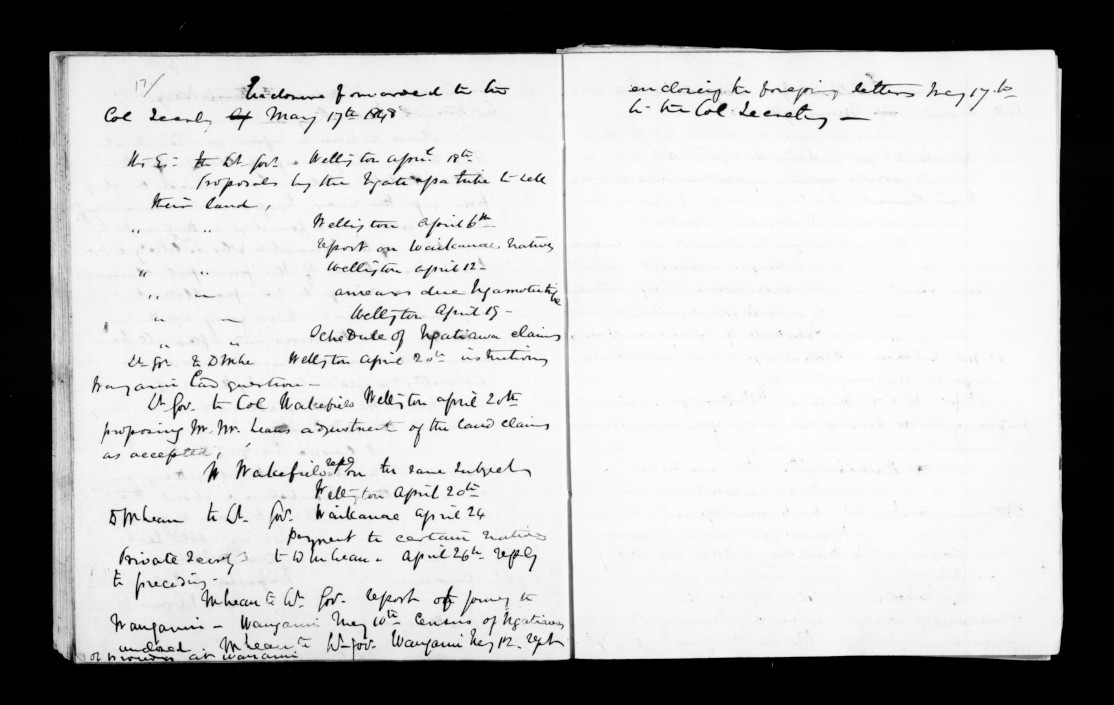 17/
Enclosure forwarded to the
Col Secrety of May 17th 1848
Lt Gov. Wellington april 18th
Proposals by the Ngate apa tribe to sell
their land,
" " Wellington april 6th
report on Waikanae Natives
" " Wellington april 12
" " arrears due Ngamotu
Wellington April 19 -
" " Schedule of Ngatiawa claims
Lt Gov. to D McLe Wellgton april 20th instructions
Wanganui land question -
Lt Gov. to Col Wakefield Wellington april 20th
proposing Mr. Mc Leans adjustment of the land claims
as accepted,
W. Wakefield reply on the same subject
Wellington april 20th
D McLean to Lt. Gov. Waikanae april 24
Payment to certain Natives
Private Secrety to D McLean - april 26th reply
to preceding -
McLean to Lt. Gov. report of journey to
Wanganui - Wanganui May 10th Census of Ngatiawa
enclosed McLean to Lt-Gov. Wanganui May 12. rept
of proceedgs at Wanganui
enclosing the foregoing letters May 17th
to the Col. Secretary —